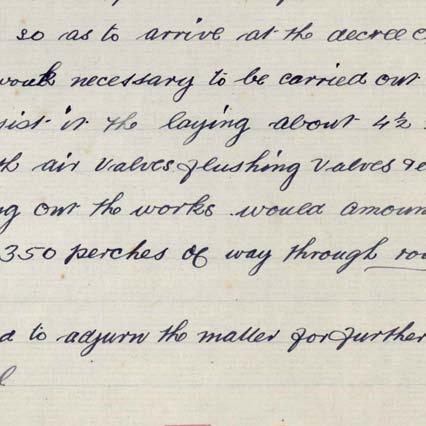 so as to arrive at the decree
work necessary to be carried out
sist in the laying about 4½
air valves flushing valves &
out the works would amoun
350 perches of way through
to adjurn the matter for further